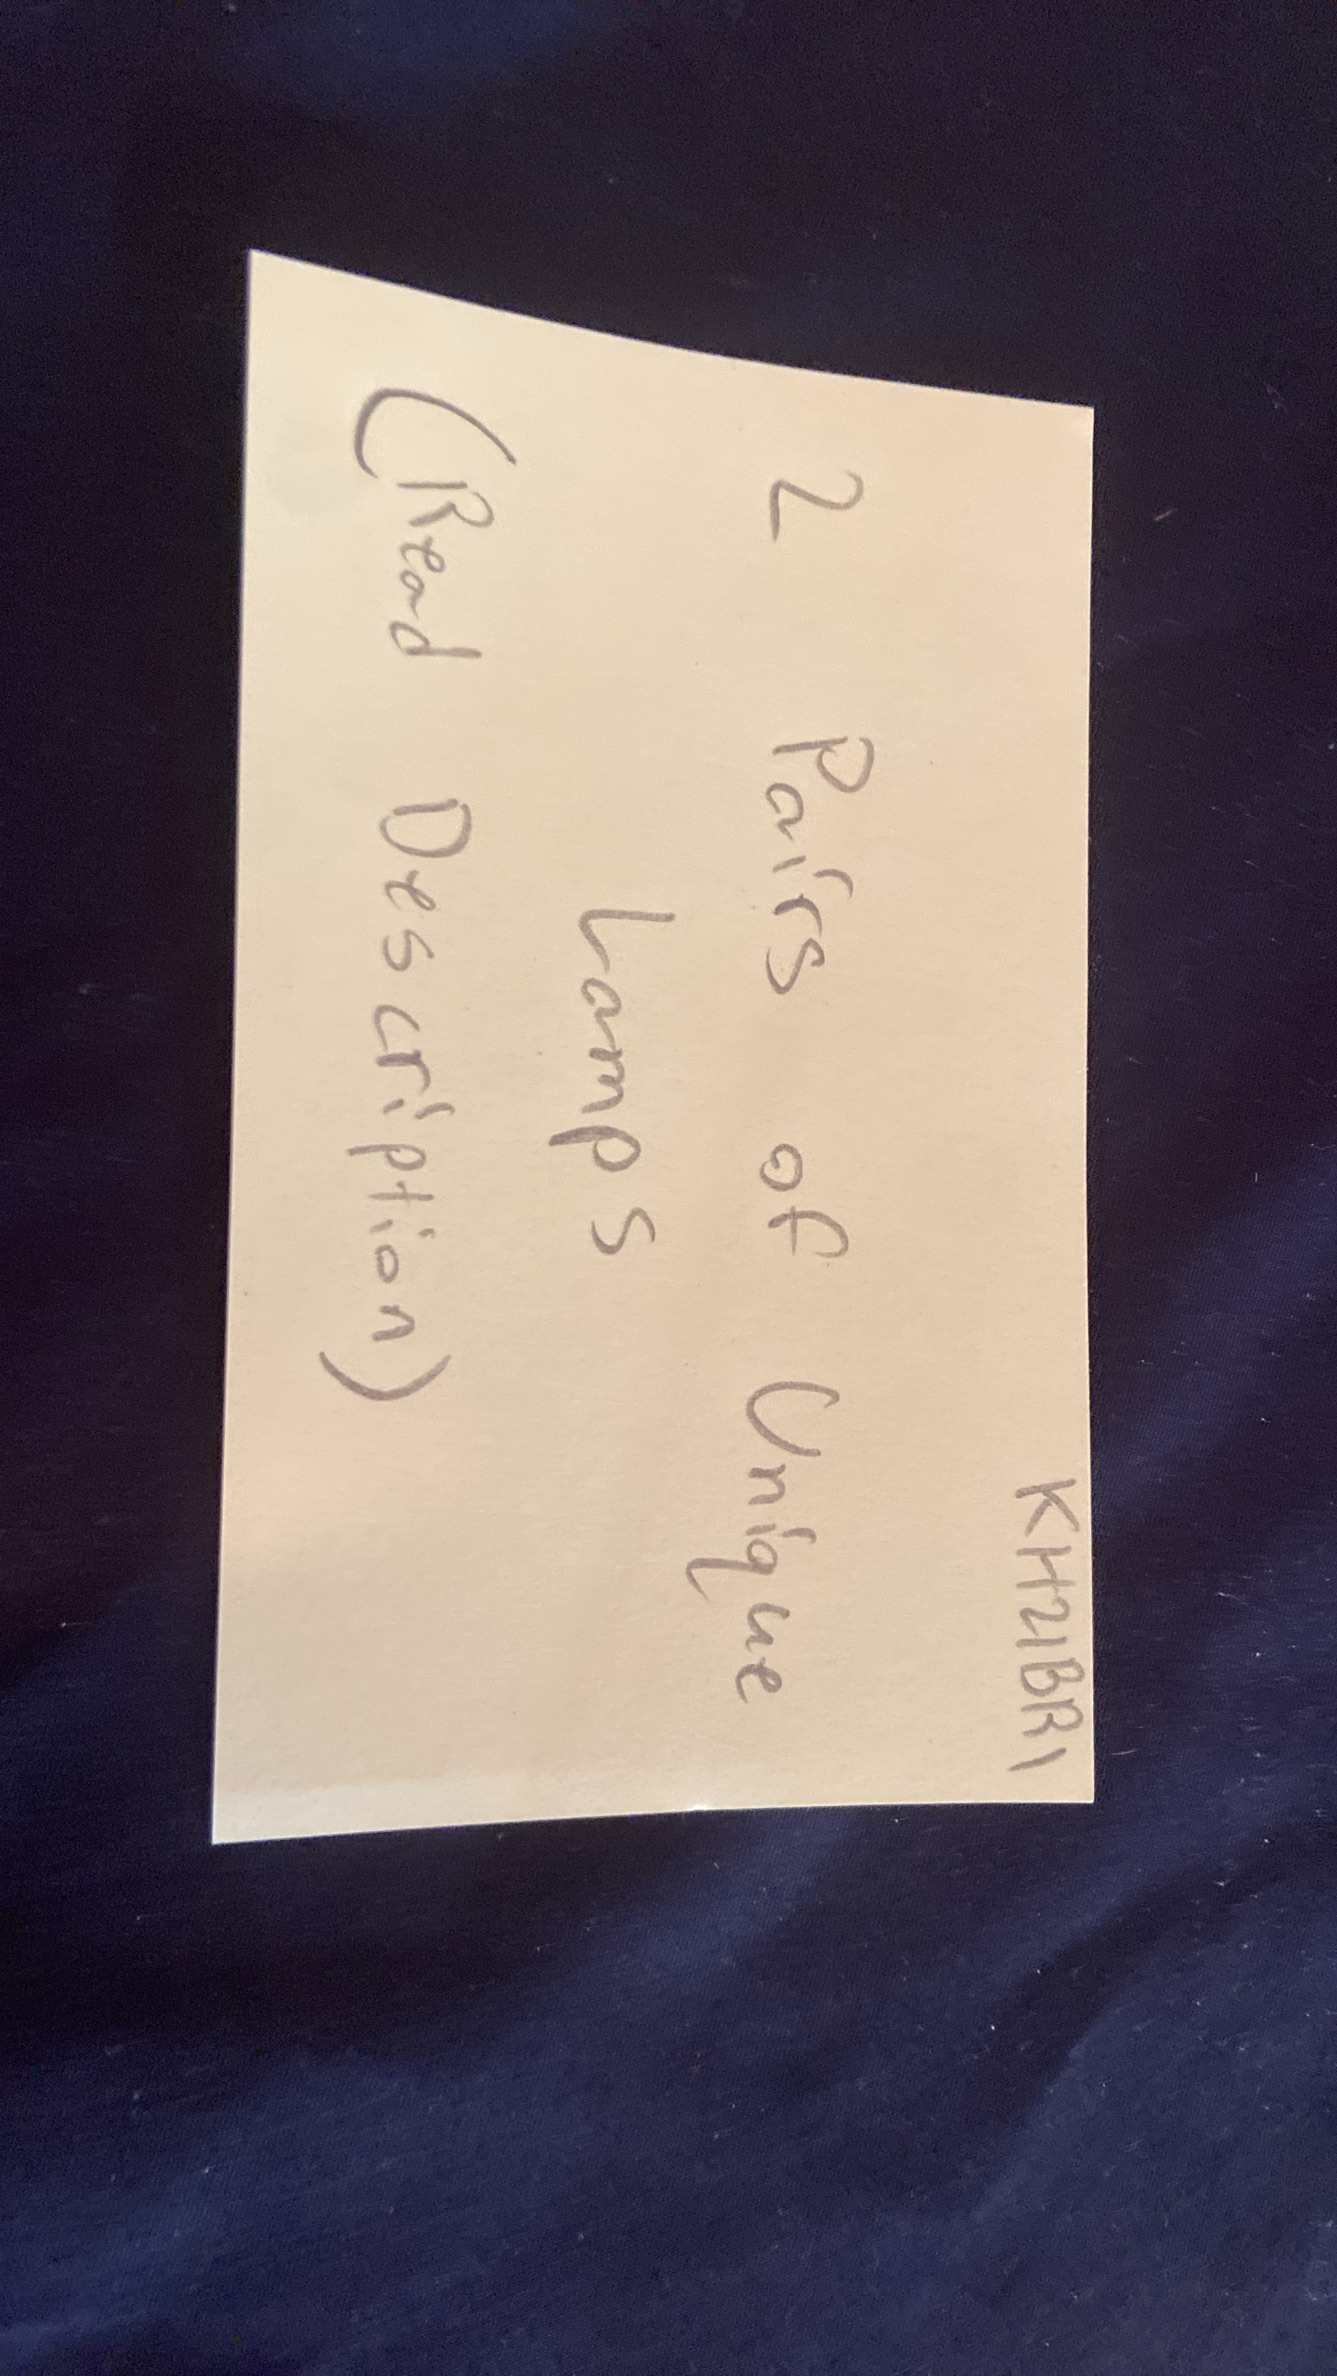 KH21BR1
2 Pairs of Unique
Lamps
(Read Description)